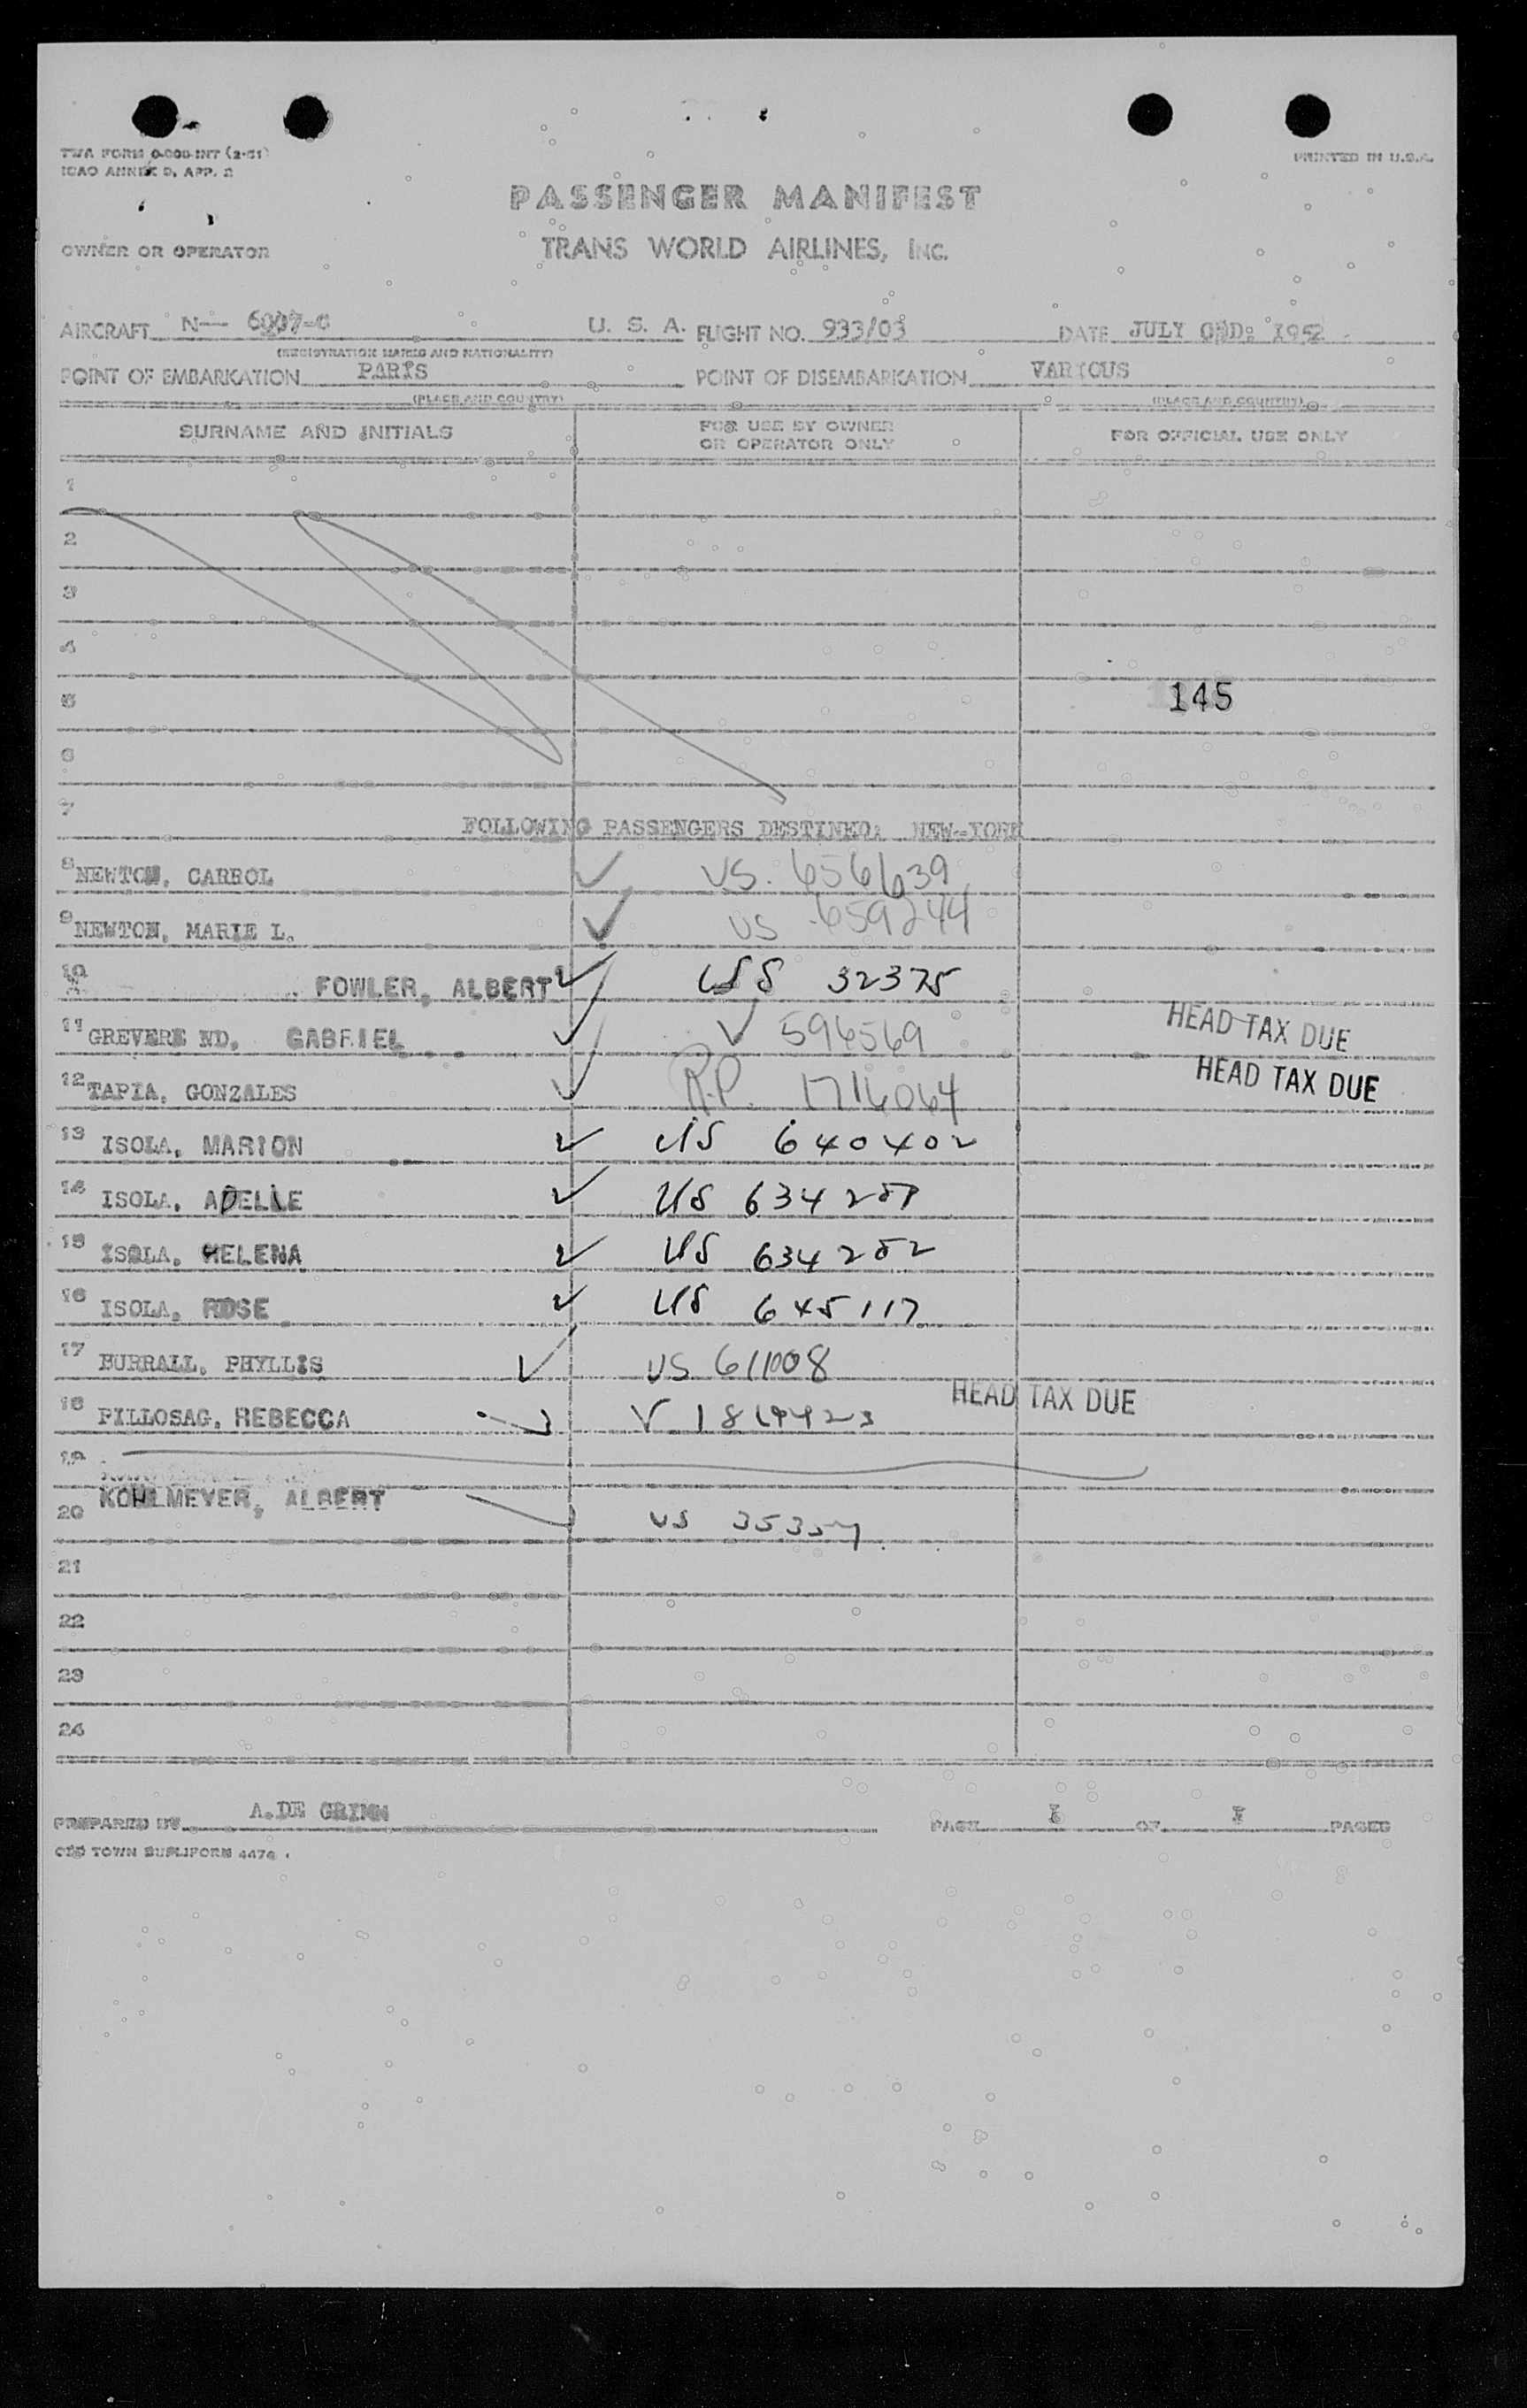 TWA FORM 0-008-INT (2-51)
ICAO ANNEX 9, APP. 2
PRINTED IN U.S.A.
PASSENGER MANIFEST
OWNER OR OPERATOR
TRANS WORLD AIRLINES, INC.
AIRCRAFT N— 6007-C U. S. A. FLIGHT NO. 933/03 DATE JULY 1952
(REGISTRATION MARKS AND NATIONALITY)
POINT OF EMBARKATION PARIS POINT OF DISEMBARKATION VARIOUS
(PLACE AND COUNTRY) (PLACE AND COUNTRY)
SURNAME AND INITIALS FOR USE BY OWNER OR OPERATOR ONLY FOR OFFICIAL USE ONLY
1
2
3
4
5 145
6
7
FOLLOWING PASSENGERS DESTINED: NEW-YORK
8 NEWTON, CARROL US. 656639
9 NEWTON, MARIE L. US 659244
10 FOWLER, ALBERT USS 32375
11 GREVERE ND, GABRIEL V 596569 HEAD TAX DUE
12 TAPIA, GONZALES R.P. 1716064 HEAD TAX DUE
13 ISOLA, MARION US 640402
14 ISOLA, ADELLE US 634281
15 ISOLA, HELENA US 634282
16 ISOLA, ROSE US 645117
17 BURRALL, PHYLLIS US 611008
18 PILLOSAG, REBECCA V HEAD TAX DUE
19
20 KOHLMEYER, ALBERT US 35357
21
22
23
24
PREPARED BY A.DE GRIMM PAGE I OF I PAGES